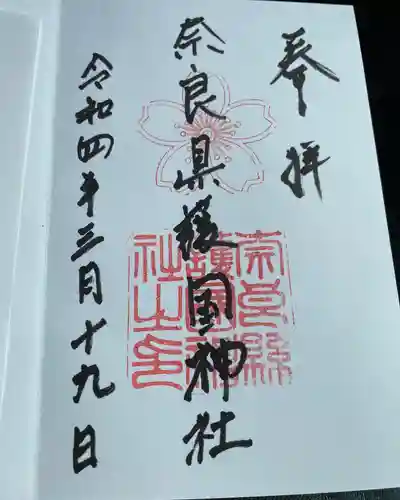 奉拝
奈良県護国神社
令和四年三月十九日
奈良縣
護國神
社之印